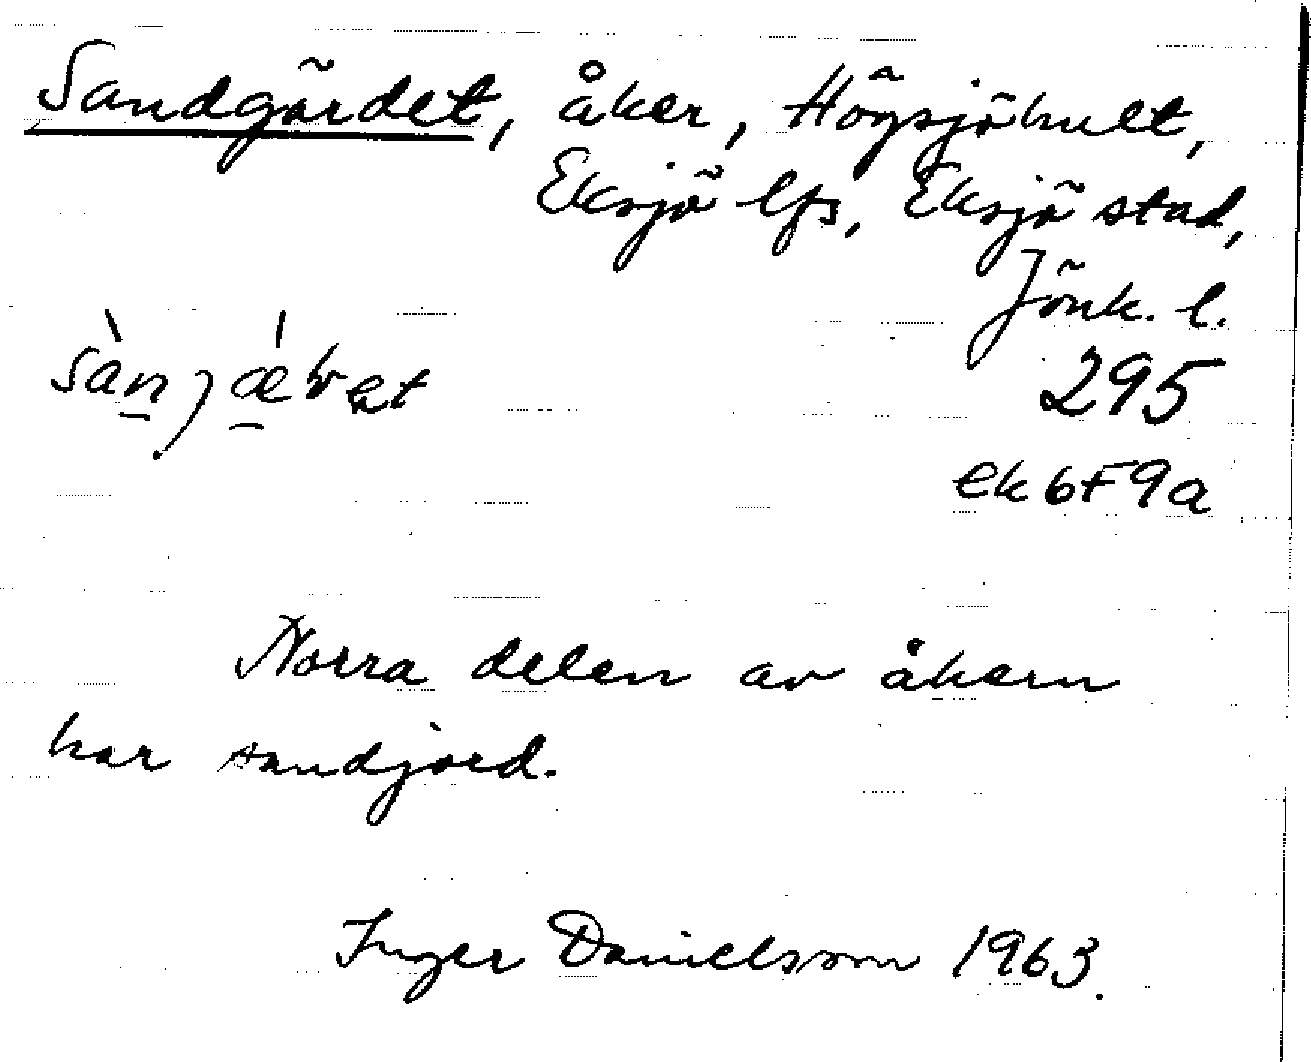 Sandgärdet, åker, Högsjöhult,
Eksjö lfs, Eksjö stad,
Jönk. l.
295
ek 6F9a
Norra delen av åkern
har sandjord.
Inger Danielsson 1963.